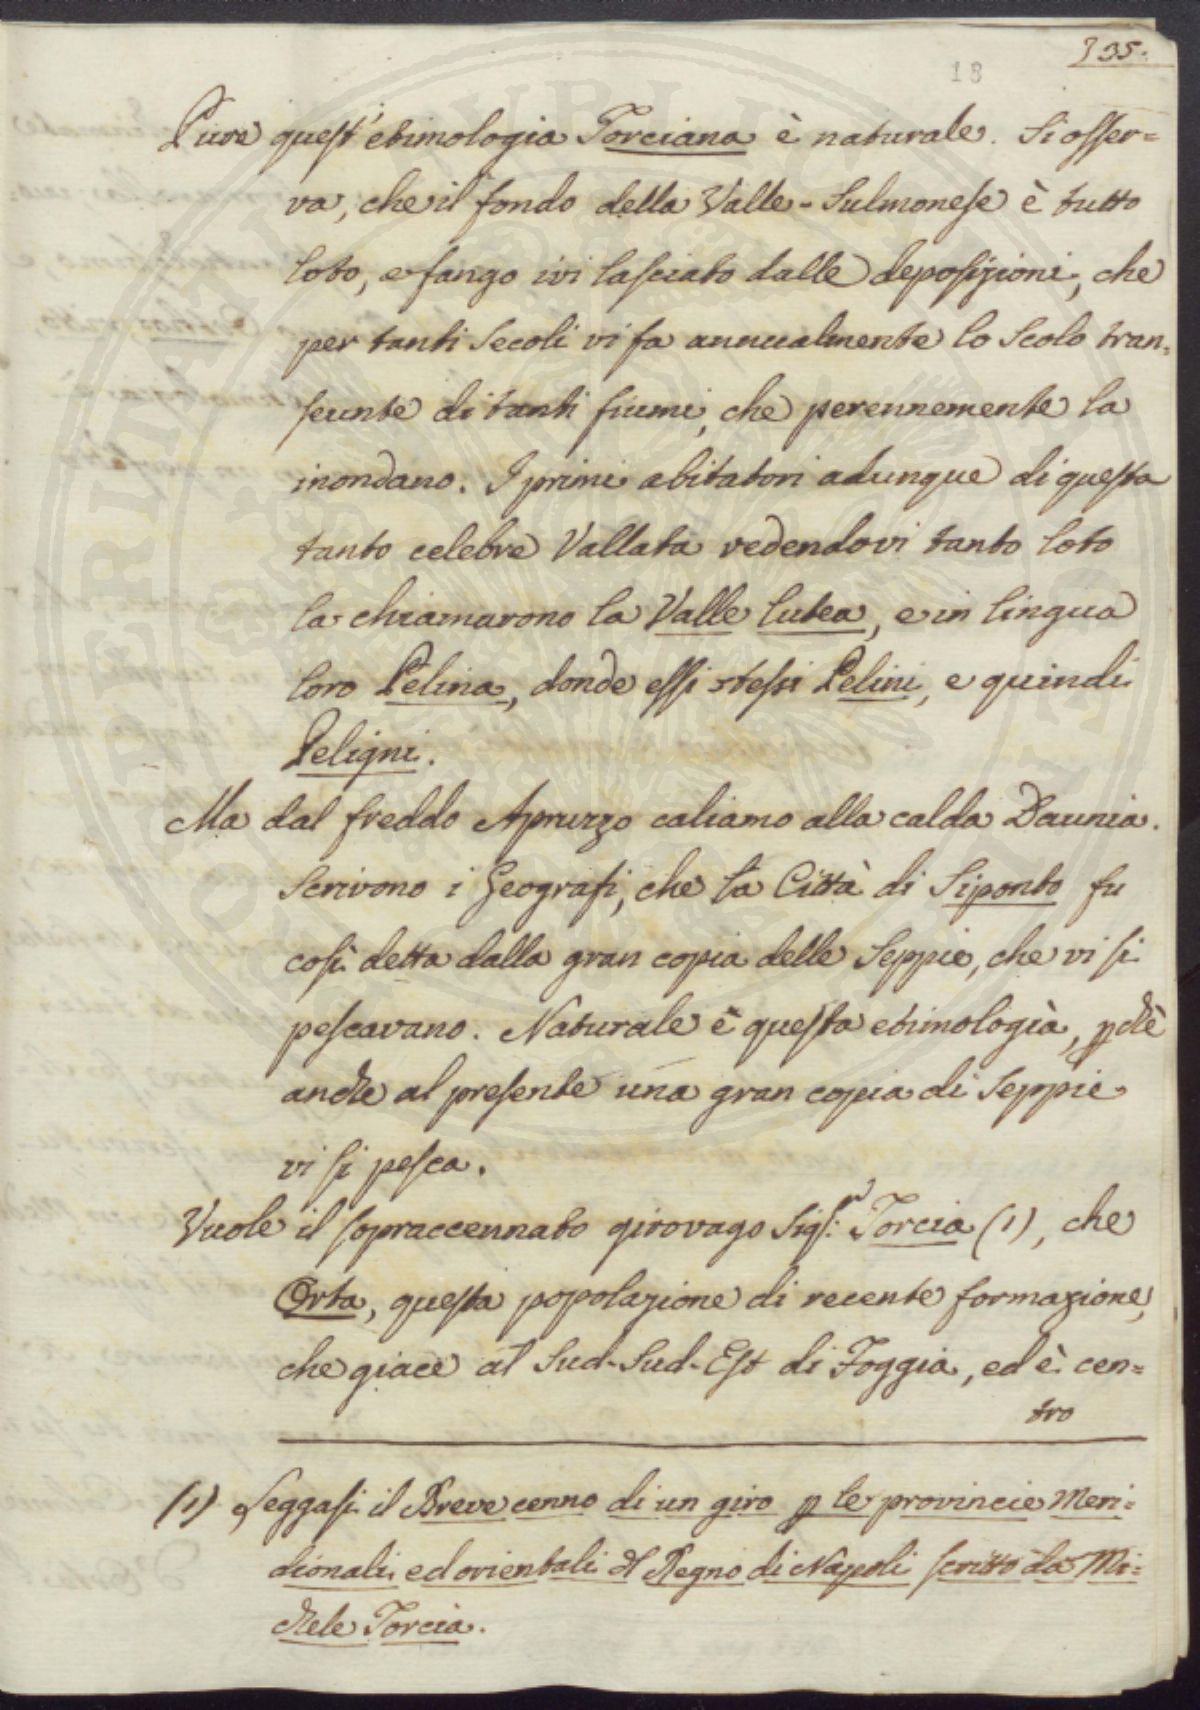 335.
18
Pure quest'etimologia Torciana è naturale. Si osser=
va, che il fondo della Valle-Sulmonese è tutto
loto, e fango ivi lasciato dalle deposizioni, che
per tanti secoli vi fa annualmente lo scolo tran=
seunte di tanti fiumi, che perennemente la
inondano. I primi abitatori adunque di questa
tanto celebre Vallata vedendovi tanto loto
la chiamarono la Valle lutea, e in lingua
loro Pelina, donde essi stessi Pelini, e quindi
Peligni.
Ma dal freddo Apruzzo caliamo alla calda Daunia.
Scrivono i Geografi, che la Città di Siponto fu
così detta dalla gran copia delle Seppie, che vi si
pescavano. Naturale è questa etimologia, pchè
anche al presente una gran copia di Seppie
vi si pesca.
Vuole il sopraccennato girovago Sigr: Torcia (1), che
Orta, questa popolazione di recente formazione,
che giace al Sud-Sud-Est di Foggia, ed è cen=
tro
(1) Leggasi il Breve cenno di un giro p le provincie Meri=
dionali ed orientali dl Regno di Napoli scritto da Mi=
chele Torcia.